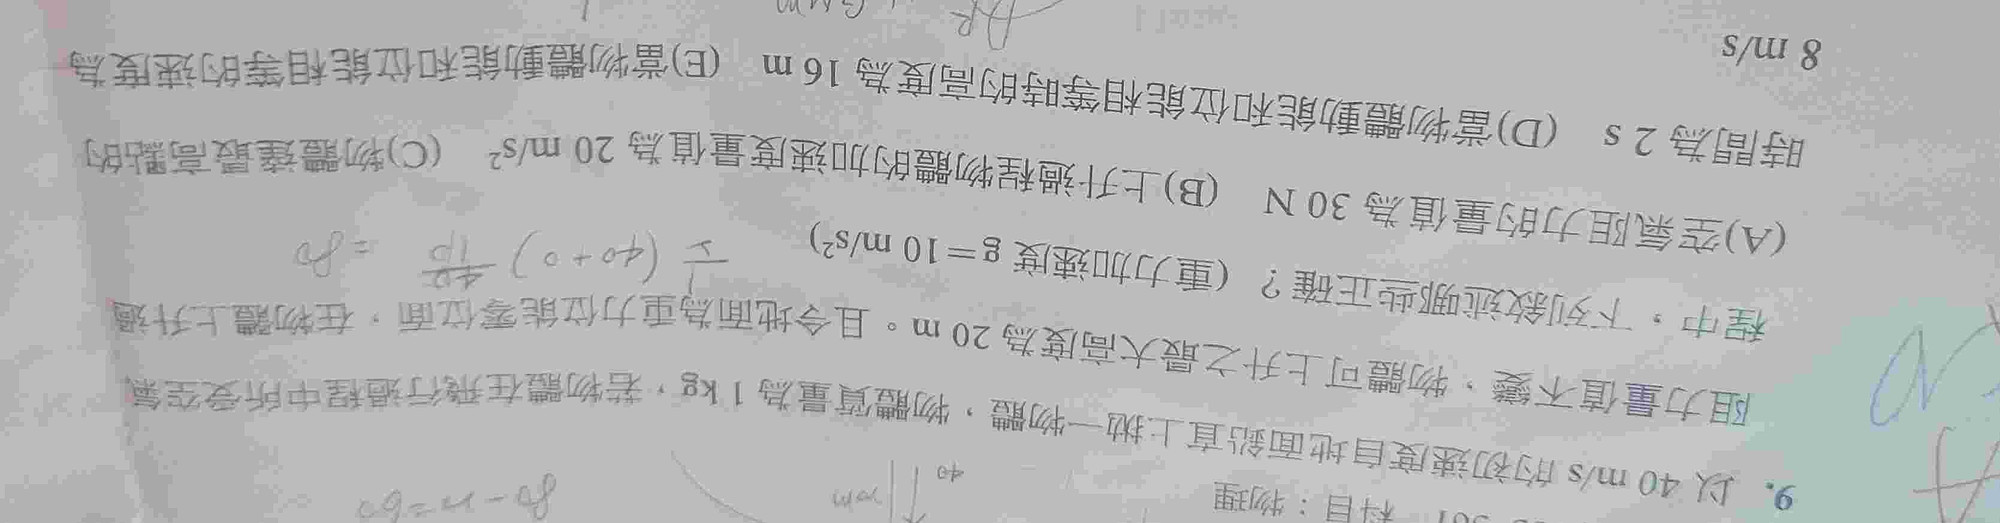 科目：物理
40
80-x=60
9. 以 40 m/s 的初速度自地面鉛直上拋一物體，物體質量為 1 kg，若物體在飛行過程中所受空氣
阻力量值不變，物體可上升之最大高度為 20 m。且令地面為重力位能零位面，在物體上升過
程中，下列敘述哪些正確？（重力加速度 g＝10 m/s²）
(A)空氣阻力的量值為 30 N (B)上升過程物體的加速度量值為 20 m/s² (C)物體達最高點的
時間為 2 s (D)當物體動能和位能相等時的高度為 16 m (E)當物體動能和位能相等的速度為
8 m/s